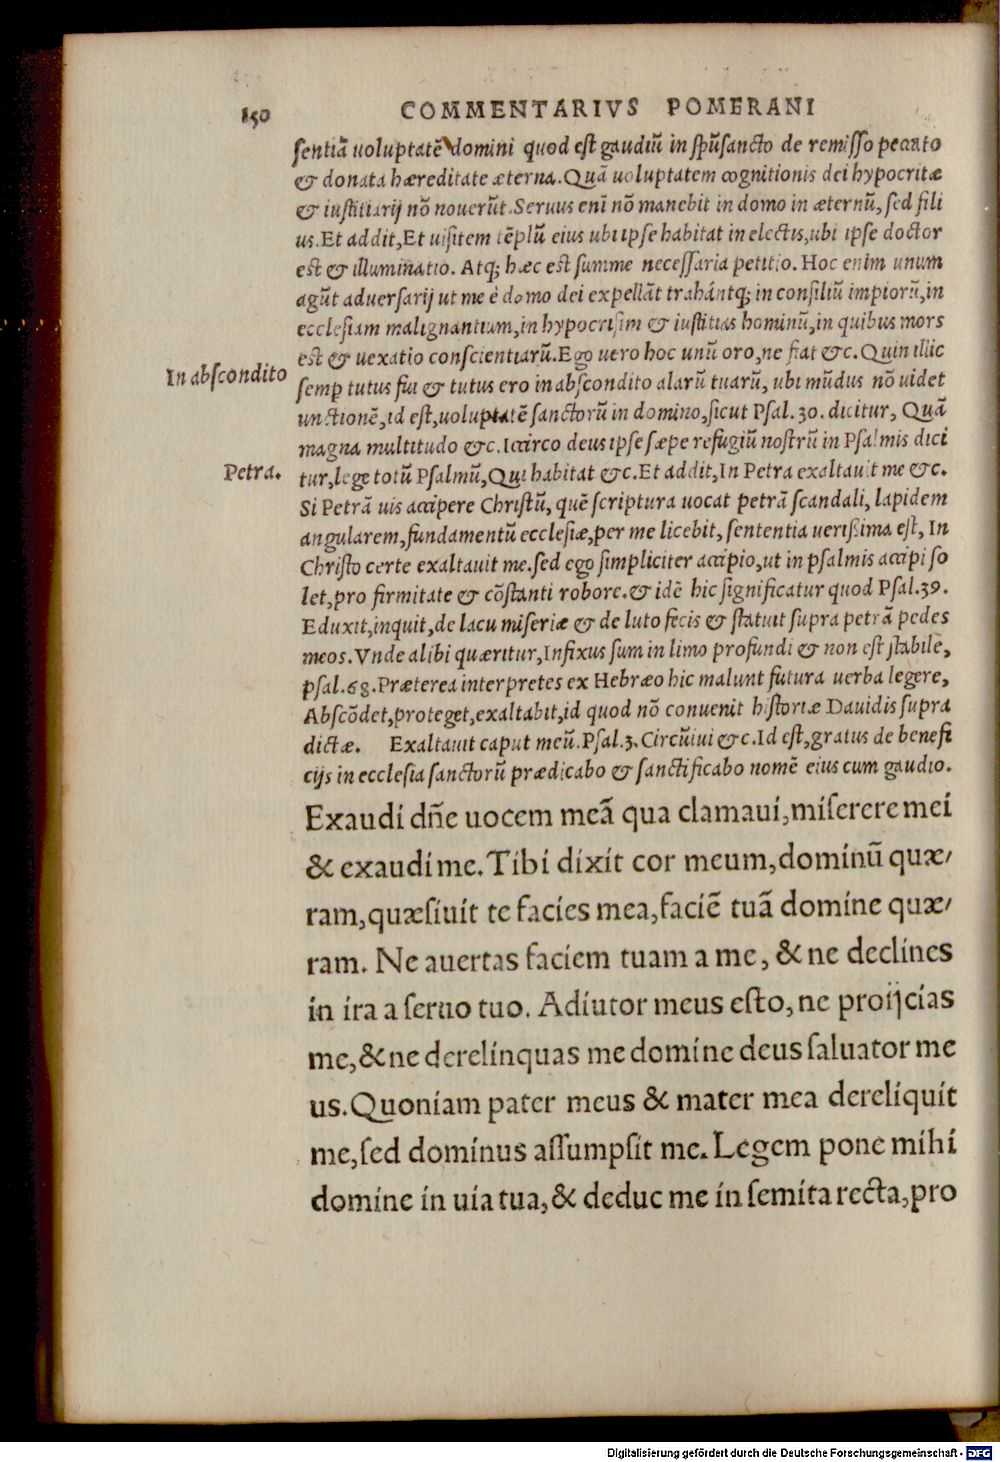 150 COMMENTARIVS POMERANI
ſentiã uoluptatẽ domini quod eſt gaudiũ in ſpũſancto de remiſſo peccato
& donata hæreditate æterna. Quã uoluptatem cognitionis dei hypocritæ
& iuſtitiarij nõ nouerũt. Seruus enĩ nõ manebit in domo in æternũ, ſed fili
us. Et addit, Et uiſitem tẽplũ eius ubi ipſe habitat in electis, ubi ipſe doctor
eſt & illuminatio. Atq; hæc eſt ſumme neceſſaria petitio. Hoc enim unum
agũt aduerſarij ut me è domo dei expellãt trahántq; in conſiliũ impiorũ, in
eccleſiam malignantium, in hypocriſim & iuſtitias hominũ, in quibus mors
eſt & uexatio conſcientiarũ. Ego uero hoc unũ oro, ne fiat &c. Quin illic
In abſcondito
ſemp tutus fui & tutus ero in abſcondito alarũ tuarũ, ubi mũdus nõ uidet
unctionẽ, id eſt, uoluptatẽ ſanctorũ in domino, ſicut Pſal. 30. dicitur, Quã
magna multitudo &c. Iccirco deus ipſe ſæpe refugiũ noſtrũ in Pſalmis dici
Petra.
tur, lege totũ Pſalmũ, Qui habitat &c. Et addit, In Petra exaltauit me &c.
Si Petrã uis accipere Chriſtũ, quẽ ſcriptura uocat petrã ſcandali, lapidem
angularem, fundamentũ eccleſiæ, per me licebit, ſententia uerißima eſt, In
Chriſto certe exaltauit me. ſed ego ſimpliciter accipio, ut in pſalmis accipi ſo
let, pro firmitate & cõſtanti robore. & idẽ hic ſignificatur quod Pſal. 39.
Eduxit, inquit, de lacu miſeriæ & de luto fecis & ſtatuit ſupra petrã pedes
meos. Vnde alibi quæritur, Infixus ſum in limo profundi & non eſt ſtabile,
pſal. 68. Præterea interpretes ex Hebræo hic malunt futura uerba legere,
Abſcõdet, proteget, exaltabit, id quod nõ conuenit hiſtoriæ Dauidis ſupra
dictæ. Exaltauit caput meũ. Pſal. 3. Circũiui &c. Id eſt, gratus de benefi
cijs in eccleſia ſanctorũ prædicabo & ſanctificabo nomẽ eius cum gaudio.
Exaudi dñe uocem meã qua clamaui, miſerere mei
& exaudi me. Tibi dixit cor meum, dominũ quæ/
ram, quæſiuit te facies mea, faciẽ tuã domine quæ/
ram. Ne auertas faciem tuam a me, & ne declines
in ira a ſeruo tuo. Adiutor meus eſto, ne proijcias
me, & ne derelinquas me domine deus ſaluator me
us. Quoniam pater meus & mater mea dereliquit
me, ſed dominus aſſumpſit me. Legem pone mihi
domine in uia tua, & deduc me in ſemita recta, pro
Digitalisierung gefördert durch die Deutsche Forschungsgemeinschaft - DFG